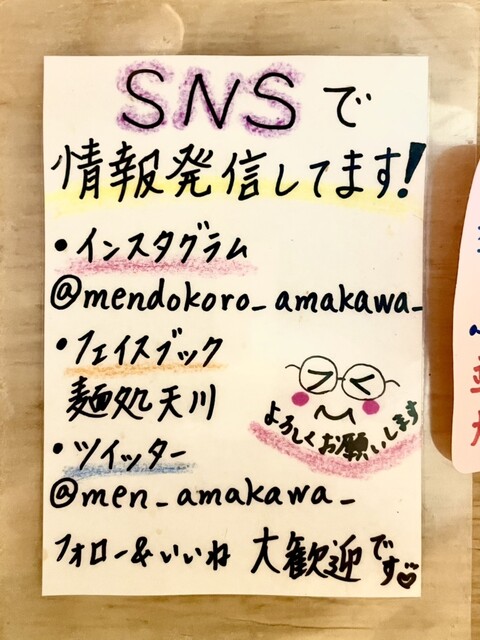 SNSで
情報発信してます!
・インスタグラム
@mendokoro_amakawa_
・フェイスブック
麺処天川
よろしくお願いします
・ツイッター
@men_amakawa_
フォロー&いいね 大歓迎です